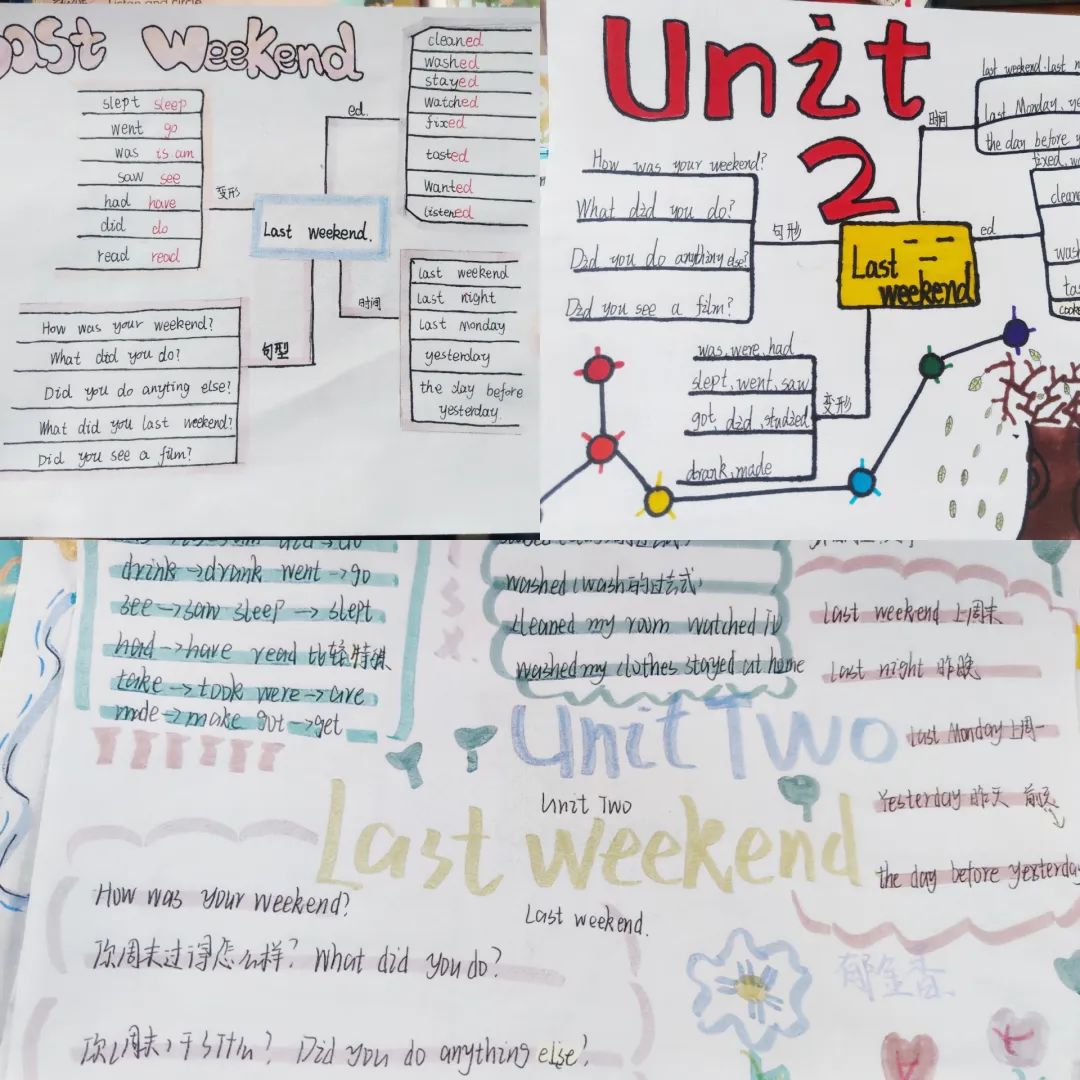 Last Weekend
slept sleep
went go
was is am
saw see
had have
did do
read read
变形
Last weekend.
ed.
cleaned
washed
stayed
watched
fixed
tasted
wanted
listened
时间
last weekend
last night
last Monday
yesterday
the day before
yesterday.
句型
How was your weekend?
What did you do?
Did you do anyting else?
What did you last weekend?
Did you see a film?
Unit
2
How was your weekend?
What did you do?
Did you do anything else?
Did you see a film?
句形
Last
weekend
时间
last weekend. last
last Monday,
the day before
ed
fixed,
变形
was, were, had
slept, went, saw
got, did, studied
drank, made
drink→drank went→go
see→saw sleep→slept
had→have read 比较特殊
take→took were→are
made→make got→get
washed (wash的过去式)
cleaned my room watched TV
washed my clothes stayed at home
last weekend 上周末
last night 昨晚
last Monday 上周一
Yesterday 昨天
the day before yesterday
Unit Two
Unit Two
Last weekend
Last weekend.
How was your weekend?
你周末过得怎么样? What did you do?
Did you do anything else?
郁金香